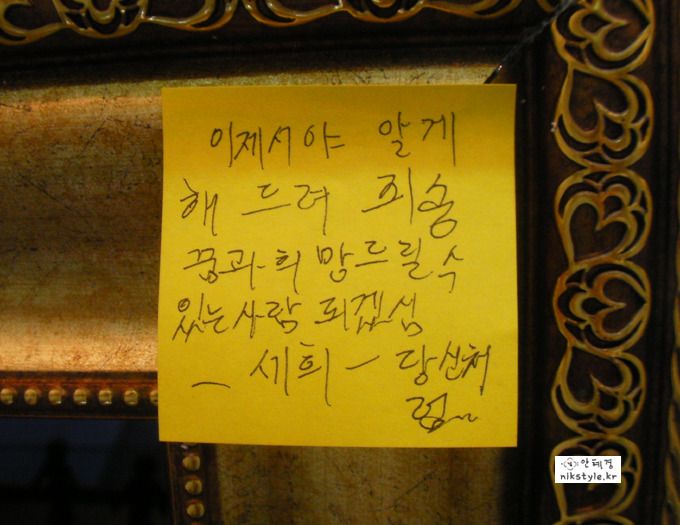 이제서야 알게
해 드려 죄송
꿈과 희망드릴 수
있는 사람 되겠섬
– 세희 – 당신처
럼~
안혜경
nikstyle.kr